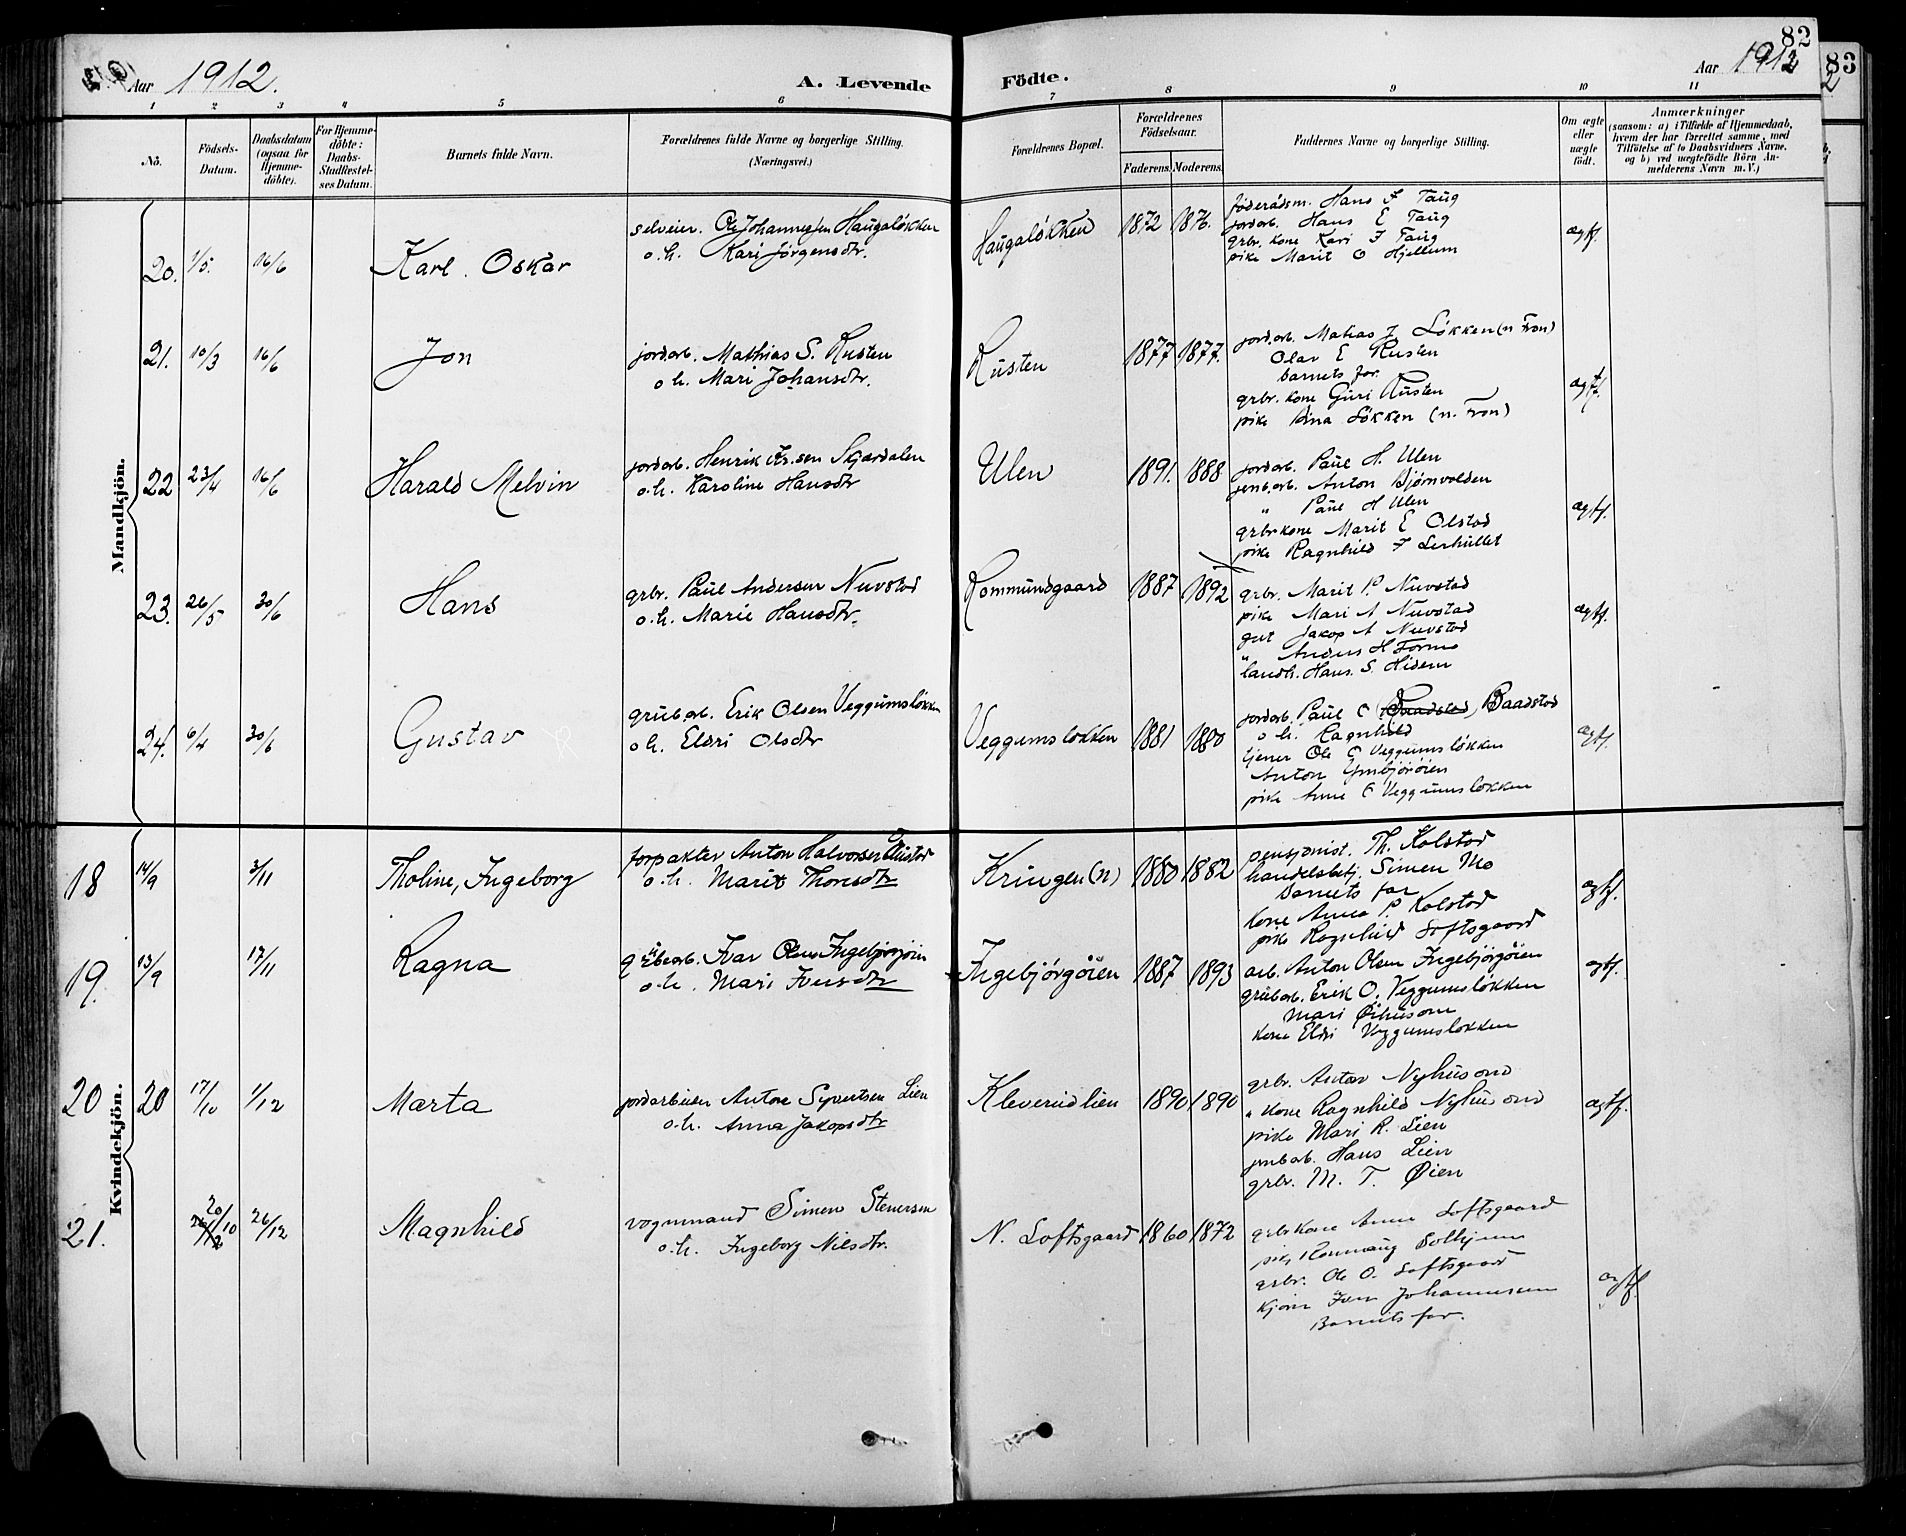 82
83
Aar 1912.
A. Levende Födte.
Aar 1912
2
1 2 3 4 5 6 7 8 9 10 11
No.
Födsels-Datum.
Daabsdatum (ogsaa for Hjemme-döbte).
For Hjemme-döbte: Daabs-Stadfestel-ses Datum.
Barnets fulde Navn.
Forældrenes fulde Navne og borgerlige Stilling. (Næringsvei.)
Forældrenes Bopæl.
Forældrenes Födselsaar.
Faderens. Moderens.
Faddernes Navne og borgerlige Stilling.
Om ægte eller uægte født.
Anmærkninger
(saasom: a) i Tilfælde af Hjemmedaab, hvem der har forrettet samme, med Tilföielse af to Daabsvidners Navne, og b) ved uægtefödte Börn Anmelderens Navn m.V.)
Mandkjön.
20. 1/5. 16/6 Karl. Oskar
selveier. Ole Johannessen Haugaløkken
o.h. Kari Jørgensdtr.
Haugaløkken 1872 1876.
føderådsm. Hans F Taug
jordarb. Hans E Taug
grbr. kone Kari F Taug
pike Marit O Hjellum
ægtf.
21. 10/3 16/6 Jon
jordarb. Mathias S. Rusten
o.h. Mari Johansdtr.
Rusten 1877 1877.
jordarb. Matias J Løkken (n Fron)
Olav E Rusten
barnets far.
grbr. kone Guri Rusten
pike Løkken (n. Fron)
ægtf.
22 23/4 16/6 Harald Melvin
jordarb. Henrik Kr.sen Skjærdalen
o.h. Karoline Hansdtr
Ulen 1891. 1888
jordarb. Paul H. Ulen
jernb.arb. Anton Bjørnvolden
" Paul H Ulen
grbr kone Marit E Olstad
pike Ragnhild F Lerhullet
ægtf.
23. 26/5 30/6 Hans
grbr. Paul Andersen Nuvstad
o.h. Marie Hansdtr.
Rommundgaard 1887 1892
grbr. Marit P. Nuvstad
pike Mari A Nuvstad
gut Jakop A Nuvstad
" Anders H Formo
landh. Hans. S. Hidem
ægtf.
24. 6/4 30/6 Gustav
grubarb. Erik Olsen Veggumsløkken
o.h. Eldri Olsdtr
Veggumsløkken 1881 1880
jordarb. Paul O (Baadstad) Baadstad
o.h. Ragnhild
tjener Ole O Veggumsløkken
Anton
pike Anne O Veggumsløkken
ægtf.
Kvindekjön.
18 14/9 3/11 Tholine, Ingeborg
forpakter Anton Halvorsen
o.h. Marit Thoresdtr
Kringen (n) 1880 1882
pensjonist. Th. Kolstad
handelsbetj. Simen Mo
barnets far
kone Anna P. Kolstad
pike Ragnhild Loftsgaard
ægtf.
19. 13/9 17/11 Ragna
grubearb. Ivar Olsen Ingebjørgøien
o.h. Mari Iversdtr
Ingebjørgøien 1887 1893
arb. Anton Olsen Ingebjørgøien
grubarb. Erik O. Veggumsløkken
Mari
kone Eldri Veggumsløkken
ægtf.
20 20 17/10 1/12 Marta
jordarbeider Anton Syvertsen Lien
o.h. Anna Jakopsdtr
Kleverudlien 1890 1890
grbr. Anton Nyhusmo
" kone Ragnhild Nyhusmo
pike Mari R. Lien
jernbarb. Hans Lien
grbr. M. T. Øien
ægtf.
21. 20/10 26/12 Magnhild
vognmand Simen Stenersen
o.h. Ingeborg Nilsdtr.
N. Loftsgaard 1860 1872
grbr kone Anne Loftsgaard
pike Rønnaug Solhjem
grbr. Ole O. Loftsgaard
Johannessen
Barnets far.
ægtf.